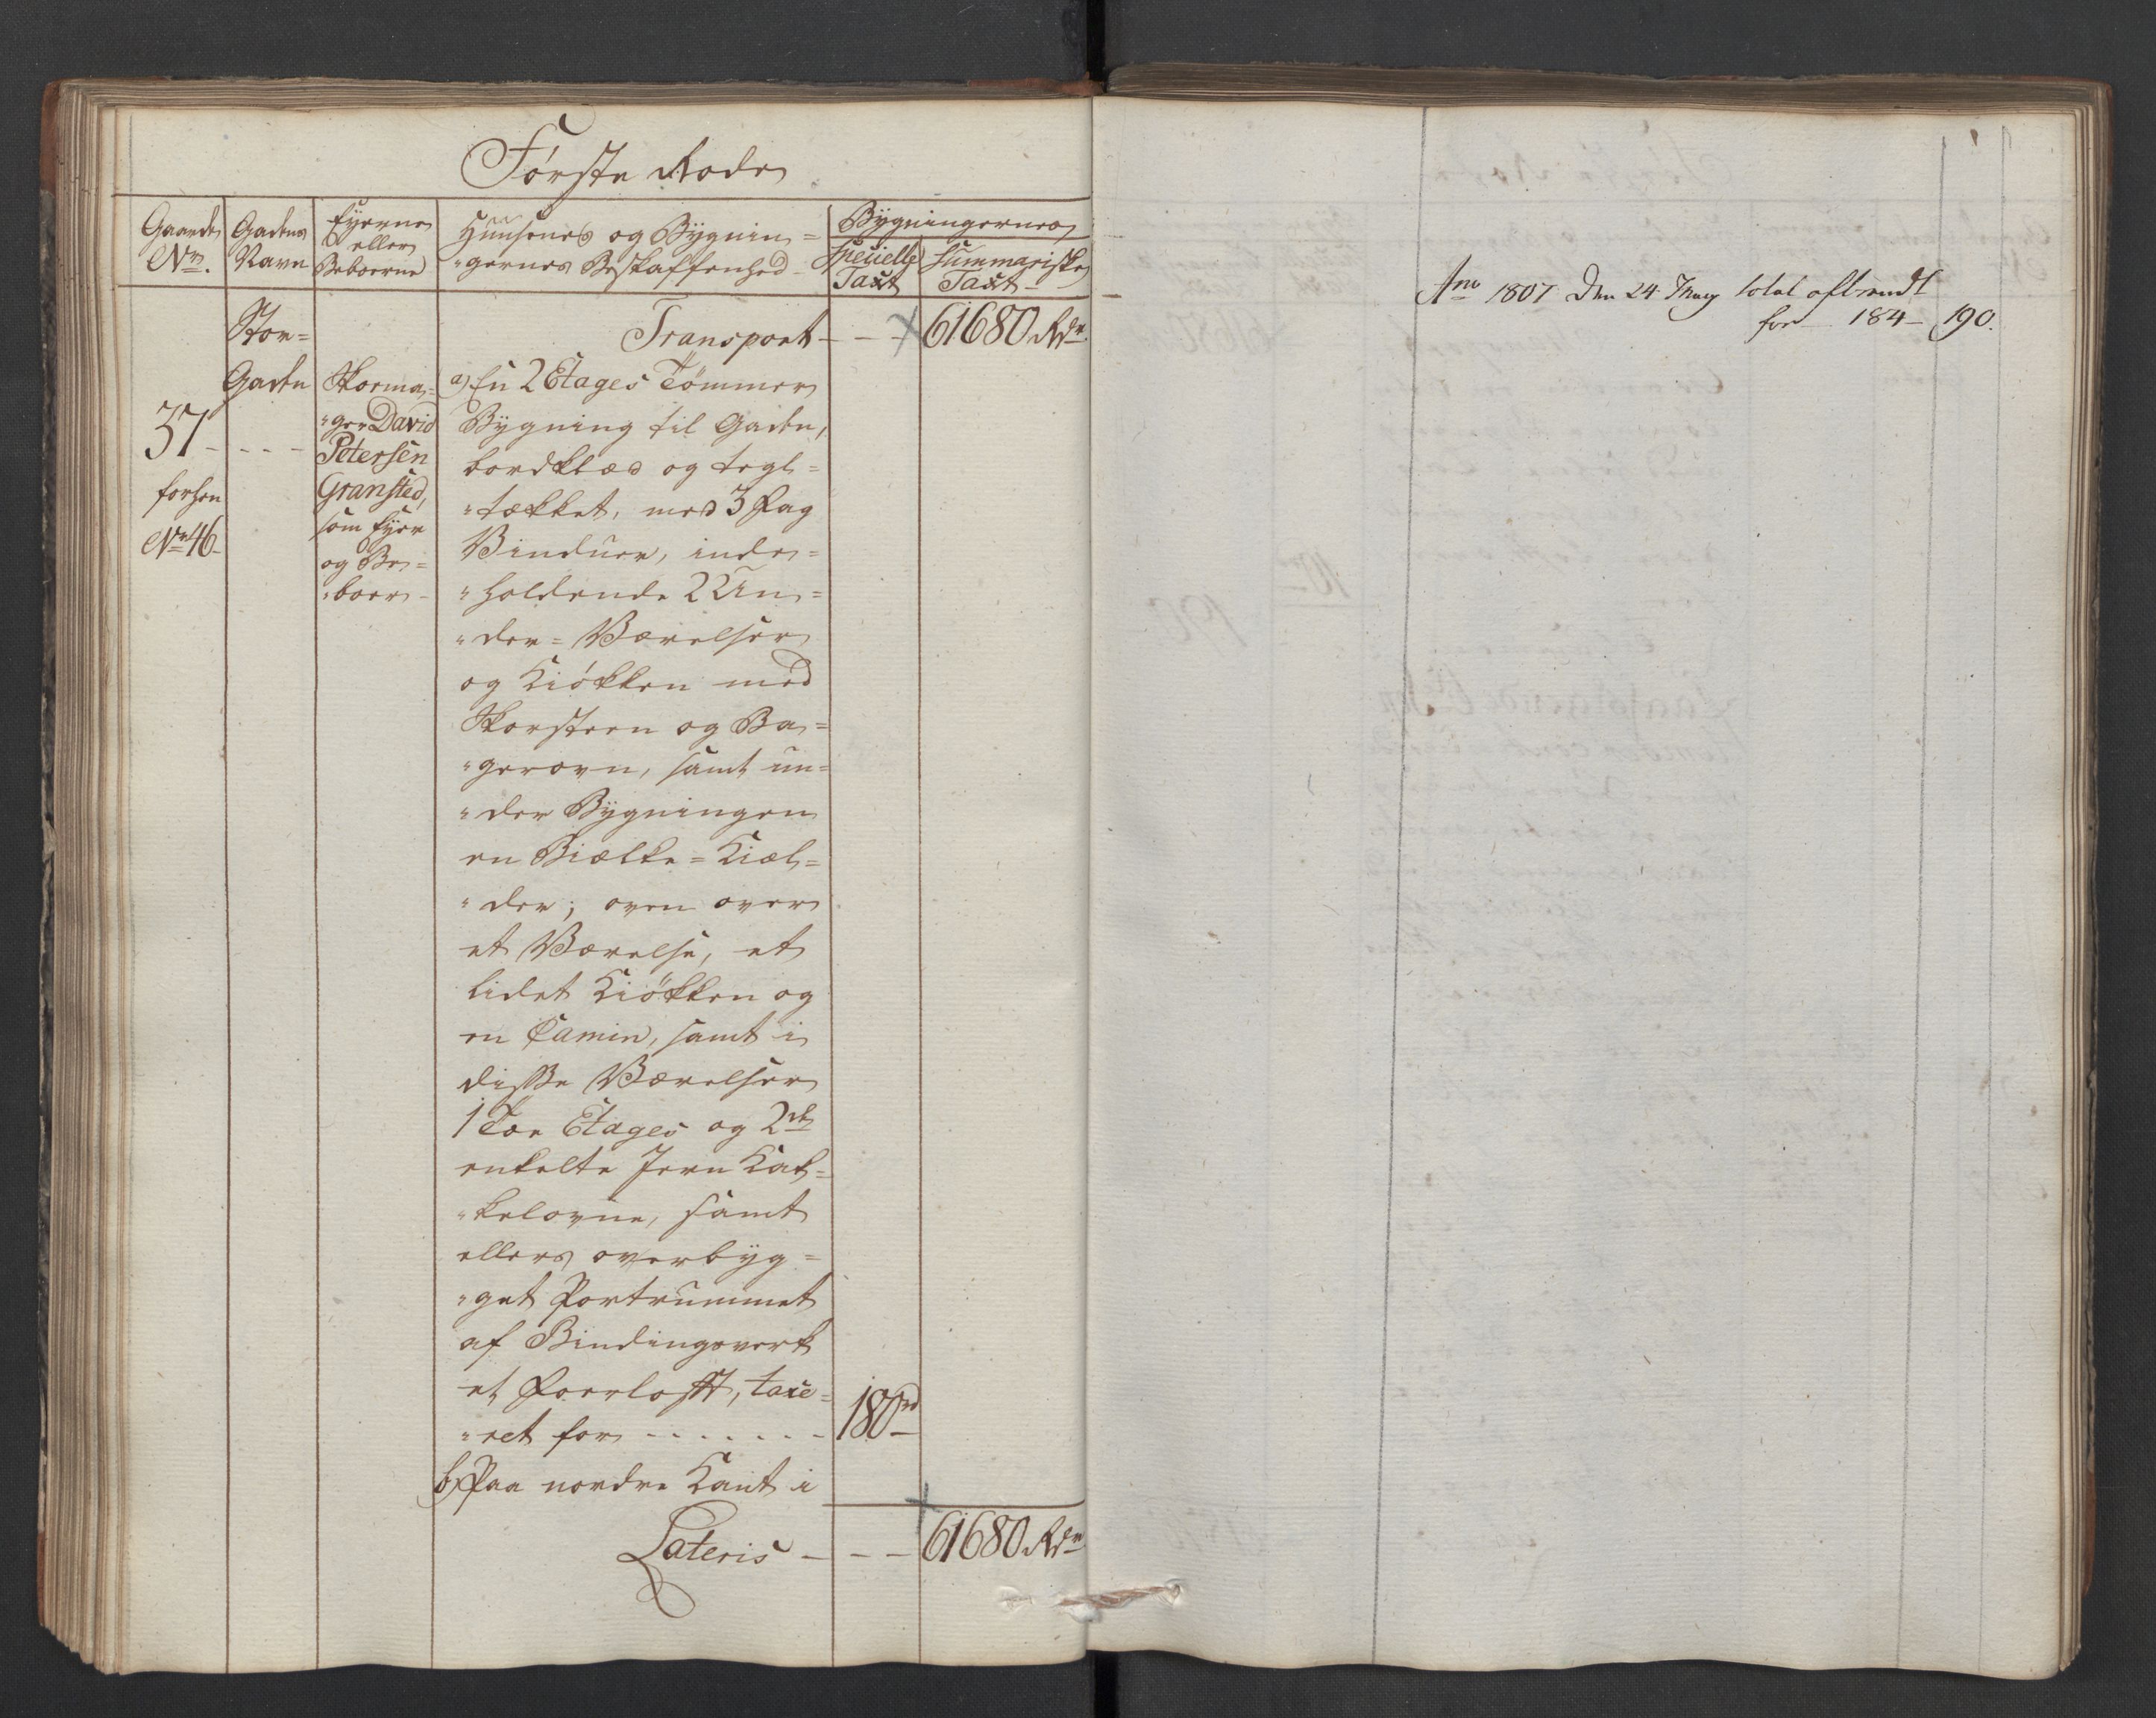 Første Rode
Gaarde Nr.
Gadens Navn
Eyerne eller Beboerne
Huusenes og Bygnin=
"gernes Beskaffenhed
Bygningernes
Specielle Taxt
Summariske Taxt
Transport - - - 61680 Rdr.
Stor=
Gaden
37 - - - -
forhen
Nr 46
Skorma=
"ger David
Petersen
Gransted,
som Eyer
og Be=
"boer -
a) En 2 Etages Tømmer
Bygning til Gaden,
bordklæd og tegl=
"tækket, med 3 Fag
Vinduer, inde=
"holdende 2 Un=
"der= Værelser
og Kiøkken med
Skorsteen og Ba=
"gerovn, samt un=
"der Bygningen
en Biælke=Kiæl=
"der; oven over
et Værelse, et
lidet Kiøkken og
en Camin, samt i
disse Værelser
1 Toe Etages og 2de
enkelte Jern Kak=
"kelovne, samt
ellers overbyg=
"get Portrummet
af Bindingsverk
et Foerloft, taxe=
"ret for - - - - - - - 180 rd
b) Paa nordre Kant i
Lateris - - - 61680 Rdr
Ano 1807 den 24 May total afbrendt
for 184 - 190.